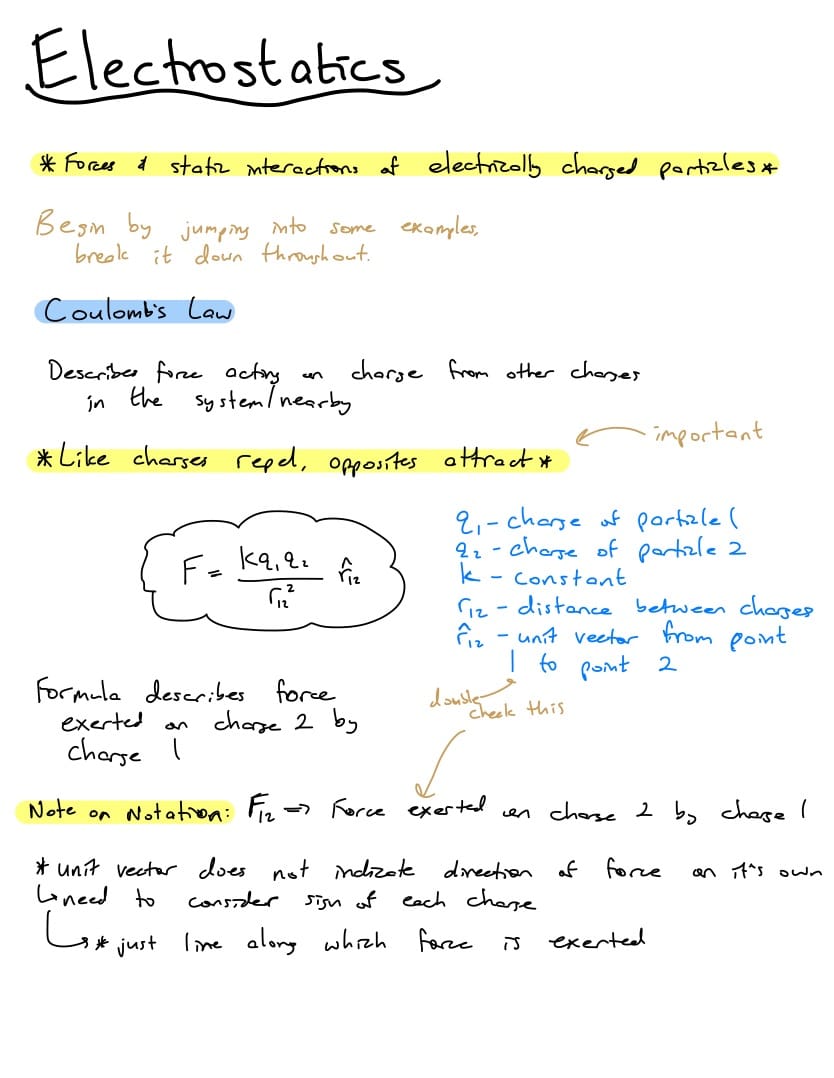 Electrostatics
* Forces & static interactions of electrically charged particles *
Begin by jumping into some examples,
break it down throughout.
Coulomb's Law
Describes force acting on charge from other charges
in the system/nearby
important
* Like charges repel, opposites attract *
F = kq₁q₂ / r₁₂² r̂₁₂
q₁ - charge of particle 1
q₂ - charge of particle 2
k - constant
r₁₂ - distance between charges
r̂₁₂ - unit vector from point
1 to point 2
Formula describes force
exerted on charge 2 by
charge 1
double
check this
Note on Notation: F₁₂ => Force exerted on charge 2 by charge 1
* unit vector does not indicate direction of force on it's own
↳ need to consider sign of each charge
↳ * just line along which force is exerted